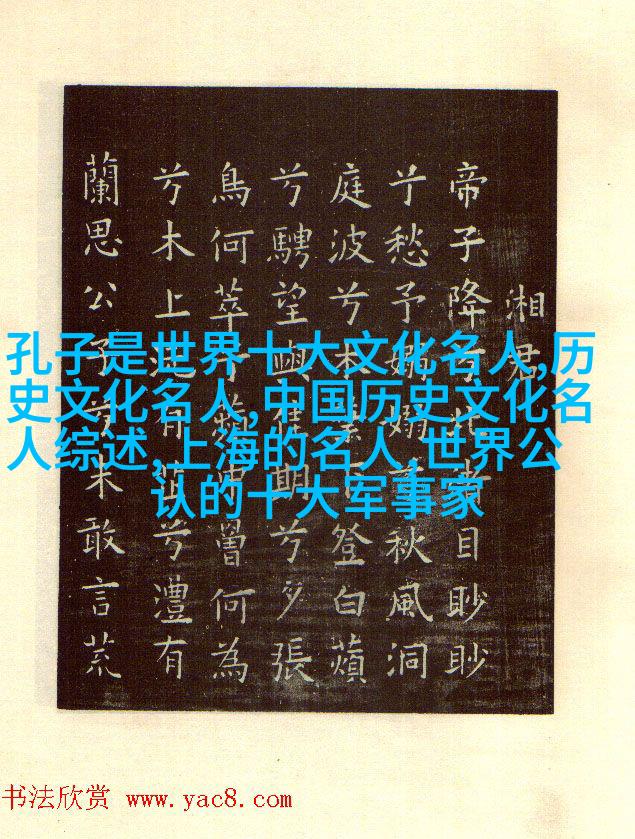 湘君
帝子降兮北渚目眇眇
兮愁予嫋嫋兮秋風洞
庭波兮木葉下登白薠
兮騁望與佳期兮夕張
鳥何萃兮中罾何為
兮木上沅有茝兮澧有
蘭思公子兮未敢言荒
孔子是世界十大文化名人,历
史文化名人,中国历史文化名
人综述, 上海的名人, 世界公
认的十大军事家
书法欣赏 www.yac8.com